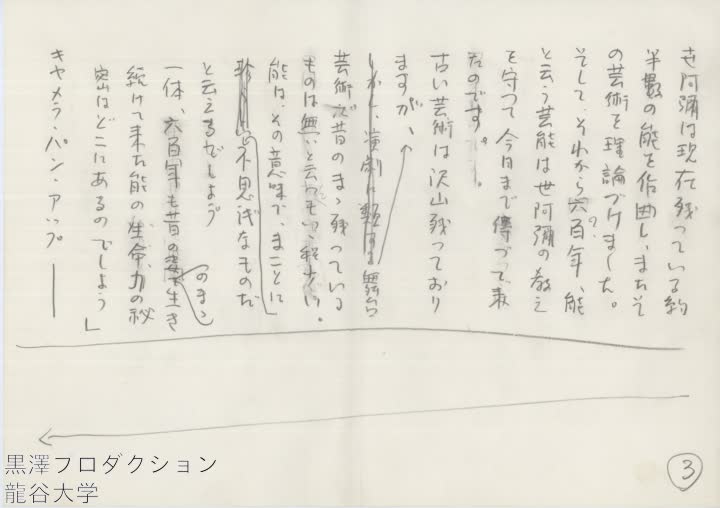 世阿彌は現在残っている約
半数の能を作曲し、またそ
の芸術を理論づけました。
そして、それから六百年、能
と云う芸能は世阿彌の教え
を守って今日まで傳って来
たのです。
古い芸術は沢山残っており
ますが、
しかし、演劇に類する舞台
芸術で昔のまゝ残っている
ものは無いと云ってもいゝ程少い。
能は、その意味で、まことに
不思議なものだ
と云えるでしょう
一体、六百年も昔の姿のまゝ生き
続けて来た能の生命力の秘
密はどこにあるのでしょう」
キャメラ・パン・アップ
3
黒澤プロダクション
龍谷大学